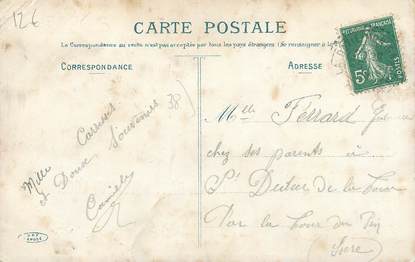 126
CARTE POSTALE
La Correspondance au recto n'est pas acceptée par tous les pays étrangers (Se renseigner à la
CORRESPONDANCE
ADRESSE
REPUBLIQUE FRANÇAISE
5c
POSTES
38)
Mille Caresses
et Doux Souvenirs
Melle Ferrard
chez ses parents à
St Didier de la Tour
Par la Tour du Pin
Isère